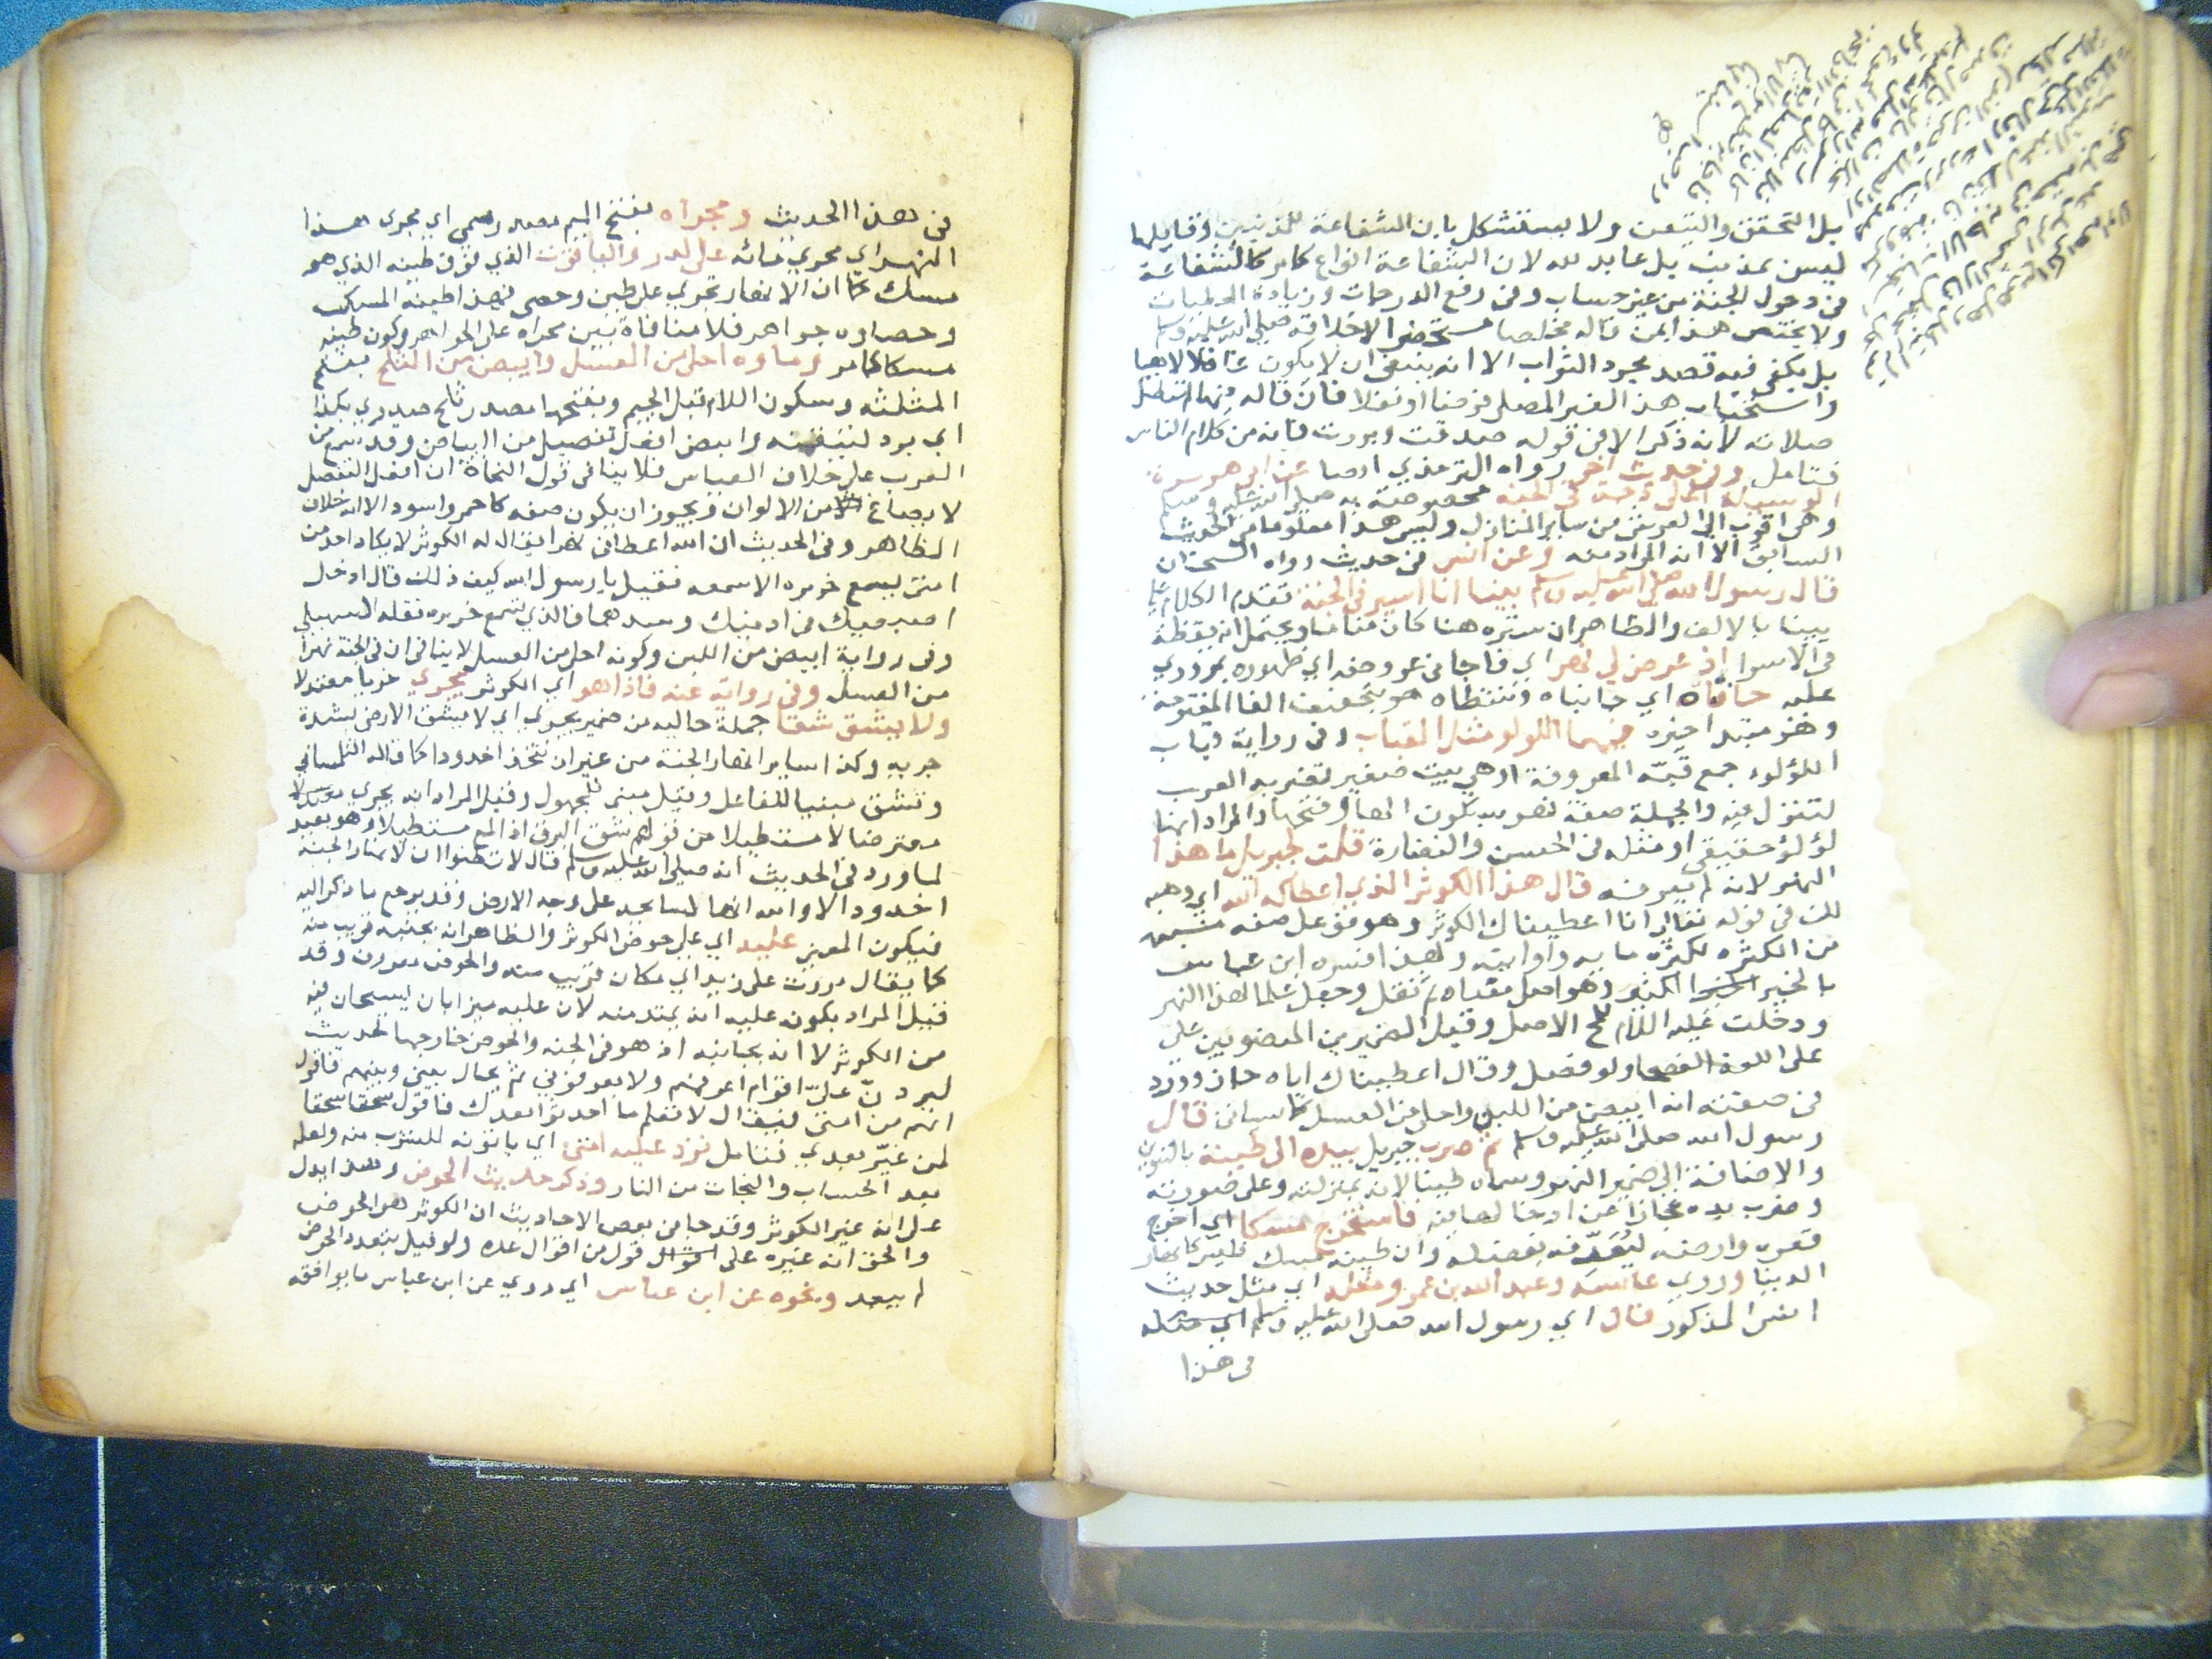 بل التحقق والتيقن ولا يستشكل بان الشفاعة للمذنبين وقايلها
ليس بمذنب بل عابد لله لان الشفاعة انواع كما مر كالشفاعة
في دخول الجنة من غير حساب وفي رفع الدرجات وزيادة العطيات
ولا يختص هذا بمن قاله مخلصا مستحضرا لاجلاله صلى الله عليه وسلم
بل يكفي فيه قصد مجرد الثواب الا انه ينبغي ان لا يكون غافلا لاهيا
واستحباب هذا لغير المصلي فرضا او نفلا فان قاله فيها لم تبطل
صلاته لانه ذكر الا في قوله صدقت وبررت فانه من كلام الناس
فتامل وفي حديث اخر رواه الترمذي ايضا عن ابي هريرة
الوسيلة اعلى درجة في الجنة مخصوصة به صلى الله عليه وسلم
وهي اقرب الى العرش من ساير المنازل وليس هذا معلوما من الحديث
السابق الا انه المراد منه وعن انس في حديث رواه الشيخان
قال رسول الله صلى الله عليه وسلم بينا انا اسير في الجنة تقدم الكلام على
بينا بالالف والظاهر ان سيره هنا كان مناما ويحتمل انه يقظة
في الاسرا اذ عرض لي نهر اي فاجاني عروضه اي ظهوره بمروري
عليه حافتاه اي جانباه وشطاه هو بتخفيف الفا المفتوحة
وهو مبتدا خبره فيهما اللولو مثل القباب وفي رواية قباب
اللؤلوء جمع قبّه المعروفة او هي بيت صغير تضربه العرب
لتنزل فيه والجملة صفة نهر بسكون الها وفتحها والمراد انها
لؤلؤ حقيقي او مثله في الحسن والنضارة قلت لجبريل ما هذا
النهر لانه لم يعرفه قال هذا الكوثر الذي اعطاكه الله اي وهبه
لك في قوله تعالى انا اعطيناك الكوثر وهو فوعل صفه مشبهه
من الكثره لكثره ما به واوانيه ولهذا فسره ابن عباس
بالخير الكثير وهو اصل معناه ثم نقل وجعل علما لهذا النهر
ودخلت عليه اللام للمح الاصل وقيل الضميرين المنصوبين على
على اللغة الفصحا ولو فصل وقال اعطيناك اياه جاز وورد
في صفته انه ابيض من اللبن واحلى من العسل كما سياتي قال
رسول الله صلى الله عليه وسلم ثم ضرب جبريل بيده الى طينة بالتنوين
والاضافة الى ضمير النهر وسماه طينا لانه بمنزلته وعلى صورته
وضرب يده مجازا عن ادخالها فيه فاستخرج مسكا اي اخرج
قعره وارضه ليُعَرِّفه بفضله وان طينه مسك فليس كانهار
الدنيا وروي عائشه وعبد الله بن عمر ومثله اي مثل حديث
انس المذكور قال اي رسول الله صلى الله عليه وسلم اي مثله
في هذا
في هذا الحديث ومجراه بفتح الميم مصدر ميمي اي مجرى هذا
النهر اي مجرى مائه على الدر والياقوت الذي فوق طينه الذي هو
مسك كما ان الانهار تجري على طين وحصى فهذا طينه المسك
وحصاوه جواهر فلا منافاة بين مجراه على الجواهر وكون طينه
مسكا كما مر وماوه احلى من العسل وابيض من الثلج بفتح
المثلثه وسكون اللام قبل الجيم وبفتحها مصدر ثلج صدري بكذا
اي برد لتيقنه وابيض افعل تفضيل من البياض وقد سمع من
العرب على خلاف القياس فلا ينافي قول النحاة ان افعل التفضيل
لا يصاغ من الالوان ويجوز ان يكون صفه كاحمر واسود الا انه خلاف
الظاهر وفي الحديث ان الله اعطاني نهرا يقال له الكوثر لا يكاد احد من
امتي يسمع خريره الا سمعه فقيل يا رسول الله كيف ذلك قال ادخل
اصبعيك في اذنيك وسدهما فالذي تسمع خريره نقله السهيلي
وفي رواية ابيض من اللبن وكونه احلى من العسل لا ينافي ان في الجنة نهرا
من العسل وفي رواية عنه فاذا هو اي الكوثر يجري جريا معتدلا
ولا يشق شقا جملة حالية من ضمير يجري اي لا يشق الارض بشدة
جريه وكذا ساير انهار الجنة من غير ان تتخذ اخدودا كما قاله التلمساني
وتشق مبنيا للفاعل وقيل مبني للمجهول وقيل المراد انه يجري
معترضا لا مستطيلا من قولهم شق البرق اذا لمع مستطيلا وهو بعيد
لما ورد في الحديث انه صلى الله عليه وسلم قال لا تظنوا ان لانهار الجنة
اخدودا لا والله انها لسايحة على وجه الارض وقد يرجع ما ذكر اليه
فيكون المعنى عليه اي على حوض الكوثر والظاهر انه بجنبه قريب منه
كما يقال مررت على زيد اي مكان قريب منه والحوض معروف وقد
قيل المراد بكونه عليه انه يمتد منه لان عليه ميزابان يسيحان فيه
من الكوثر لا انه بجانبه اذ هو في الجنة والحوض خارجها لحديث
ليردنّ عليّ اقوام اعرفهم ولا يعرفوني ثم يحال بيني وبينهم فاقول
انهم من امتي فيقال لا تعلم ما احدثوا بعدك فاقول سحقا سحقا
لمن غيّر بعدي فتامل ترد عليه امتي اي ياتونه للشرب منه ولعله
بعد الحساب والنجاة من النار وذكر حديث الحوض وهذا يدل
على انه غير الكوثر وقد جا في بعض الاحاديث ان الكوثر هو الحوض
والحق انه غيره على قول من اقوال عده ولو قيل بتعدد الحوض
لم يبعد ونحوه عن ابن عباس اي روي عن ابن عباس ما يوافقه